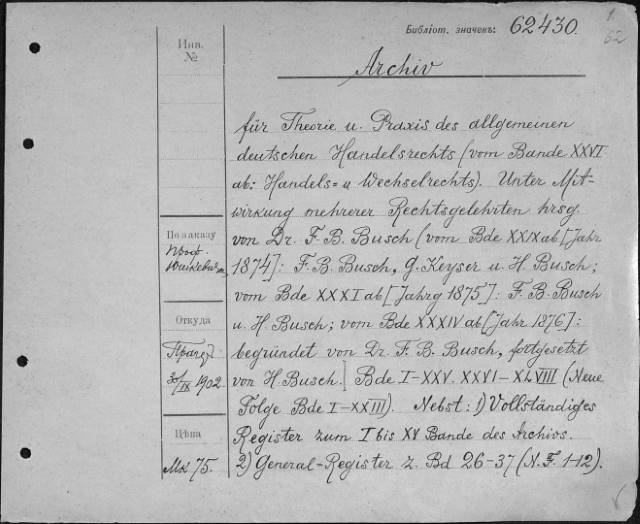 Библіот. значекъ: 62430.
1
62
Инв.
№
Archiv
für Theorie u. Praxis des allgemeinen
deutschen Handelsrechts (vom Bande XXVI
ab: Handels= u Wechselrechts). Unter Mit-
wirkung mehrerer Rechtsgelehrten hrsg.
von Dr. F. B. Busch (vom Bde XXIX ab [Jahr
1874]: F. B. Busch, G. Keyser u. H. Busch;
vom Bde XXXI ab [Jahrg 1875]: F. B. Busch
u. H. Busch; vom Bde XXXIV ab [Jahr 1876]:
begründet von Dr. F. B. Busch, fortgesetzt
von H. Busch.] Bde I-XXV. XXVI-XLVIII (Neue
Folge Bde I-XXIII). Nebst: 1) Vollständiges
Register zum I bis XV Bande des Archivs.
2) General-Register z. Bd 26-37 (N. F. 1-12).
По заказу
проф.
Откуда
IX 1902
Цѣна
Mk 75.